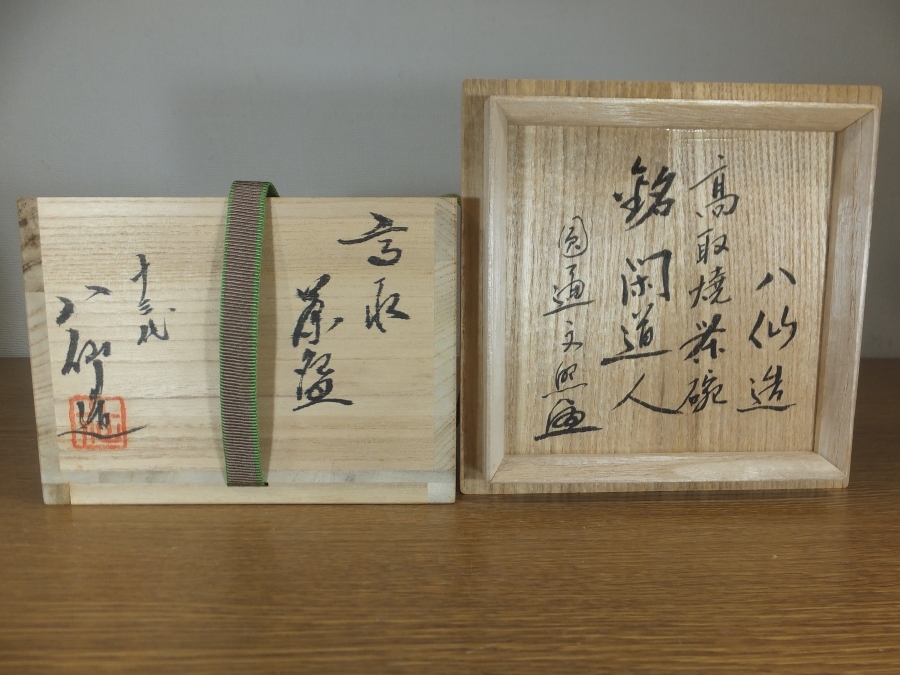 高取
茶盌
十三代
八仙造
八仙造
高取焼茶碗
銘 閑道人
圓通文煕